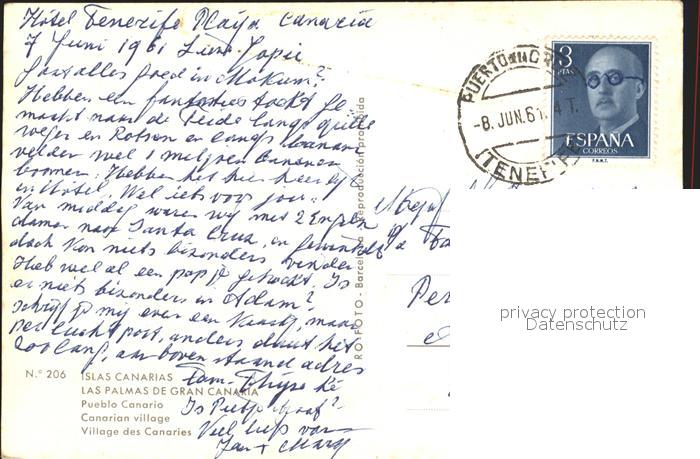 Hôtel Tenerife Playa Canaria
7 Juni 1961 Lieve Jopie
Gaat alles goed in Mokum?
Hebben een fantasties tocht ge
maakt naar de Teide langs
wegen en Rotsen en langs banane
velden wel 1 miljoen bananen
bomen. Hebben het hier heerlijk
in Hotel. Wel iets voor jou.
Van middag waren wij met 2 Engelse
dames naar Santa Cruz, en gewinkeld
doch kon niets bizonders vinden
Heb wel al een popje gekocht. Is
er niets bizonders in Adam?
Schrijf je mij even een kaartje, maar
per luchtpost, anders duurt het
zoo lang, aan boven staand adres
Fam.
Is Pietje braaf?
Veel liefs van
Jan + Mary
N.° 206 ISLAS CANARIAS
LAS PALMAS DE GRAN CANARIA
Pueblo Canario
Canarian village
Village des Canaries
RO-FOTO - Barcelona - Reproducción prohibida
PUERTO
-8. JUN. 61
(TENERIFE
3
PTAS
ESPAÑA
CORREOS
F.N.M.T.
privacy protection
Datenschutz